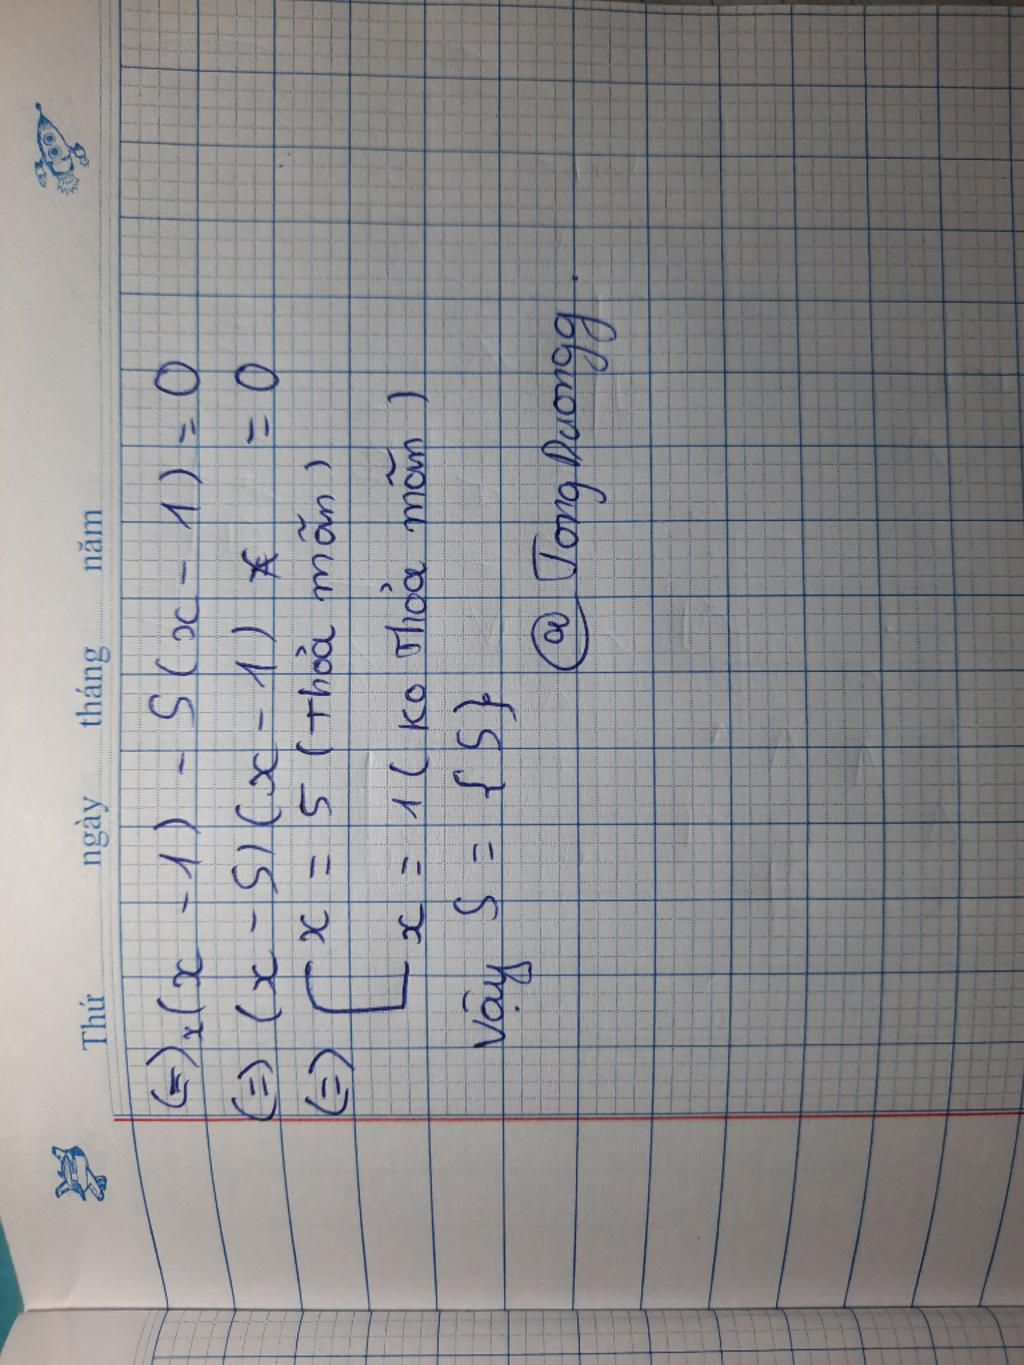 Thứ ngày tháng năm
(=) x(x - 1) - 5(x - 1) = 0
(=) (x - 5)(x - 1) = 0
(=) [ x = 5 (thỏa mãn)
x = 1 (ko thỏa mãn)
Vậy S = {5}
@ TongDuongg.